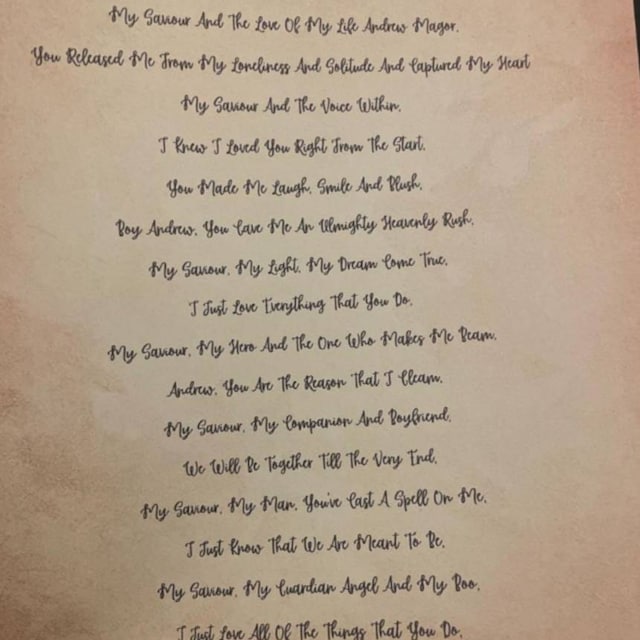 My Saviour And The Love Of My Life Andrew Magor.
You Released Me From My Loneliness And Solitude And Captured My Heart
My Saviour And The Voice Within.
I Knew I Loved You Right From The Start.
You Made Me Laugh, Smile And Blush,
Boy Andrew, You Gave Me An Almighty Heavenly Rush.
My Saviour, My Light, My Dream Come True,
I Just Love Everything That You Do.
My Saviour, My Hero And The One Who Makes Me Beam,
Andrew, You Are The Reason That I Gleam.
My Saviour, My Companion And Boyfriend,
We Will Be Together Till The Very End.
My Saviour, My Man, You've Cast A Spell On Me,
I Just Know That We Are Meant To Be.
My Saviour, My Guardian Angel And My Boo,
I Just Love All Of The Things That You Do.